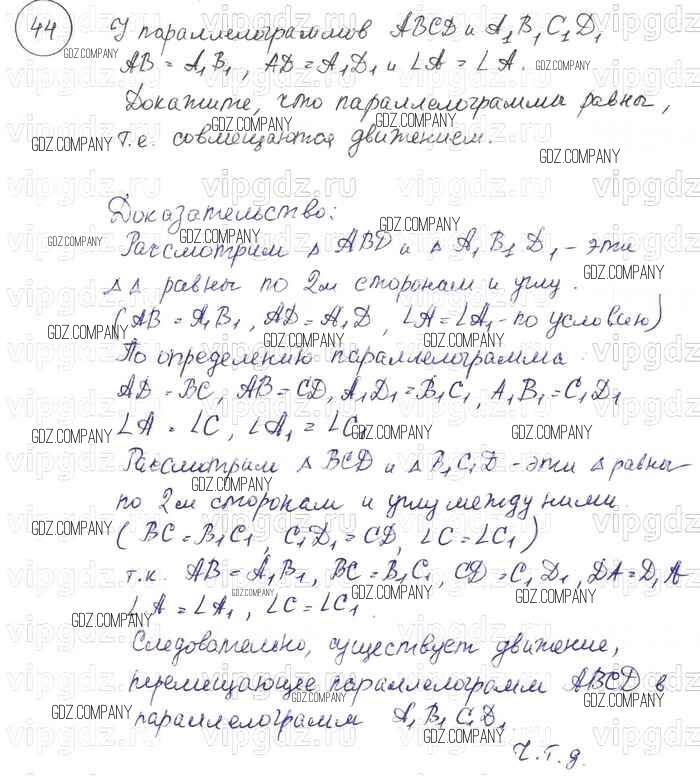 44 У параллелограммов ABCD и A₁B₁C₁D₁
AB = A₁B₁, AD = A₁D₁ и ∠A = ∠A.
Докажите, что параллелограммы равны,
т.е. совмещаются движением.
Доказательство:
Рассмотрим △ ABD и △ A₁B₁D₁ - эти
△△ равны по 2м сторонам и углу.
(AB = A₁B₁, AD = A₁D, ∠A = ∠A₁ - по условию)
По определению параллелограмма
AD = BC, AB = CD, A₁D₁ = B₁C₁, A₁B₁ = C₁D₁
∠A = ∠C, ∠A₁ = ∠C₁
Рассмотрим △ BCD и △ B₁C₁D - эти △ равны
по 2м сторонам и углу между ними
(BC = B₁C₁, C₁D₁ = CD, ∠C = ∠C₁)
т.к. AB = A₁B₁, BC = B₁C₁, CD = C₁D₁, DA = D₁A
∠A = ∠A₁, ∠C = ∠C₁.
Следовательно, существует движение,
перемещающее параллелограмм ABCD в
параллелограмм A₁B₁C₁D₁.
Ч.т.д.